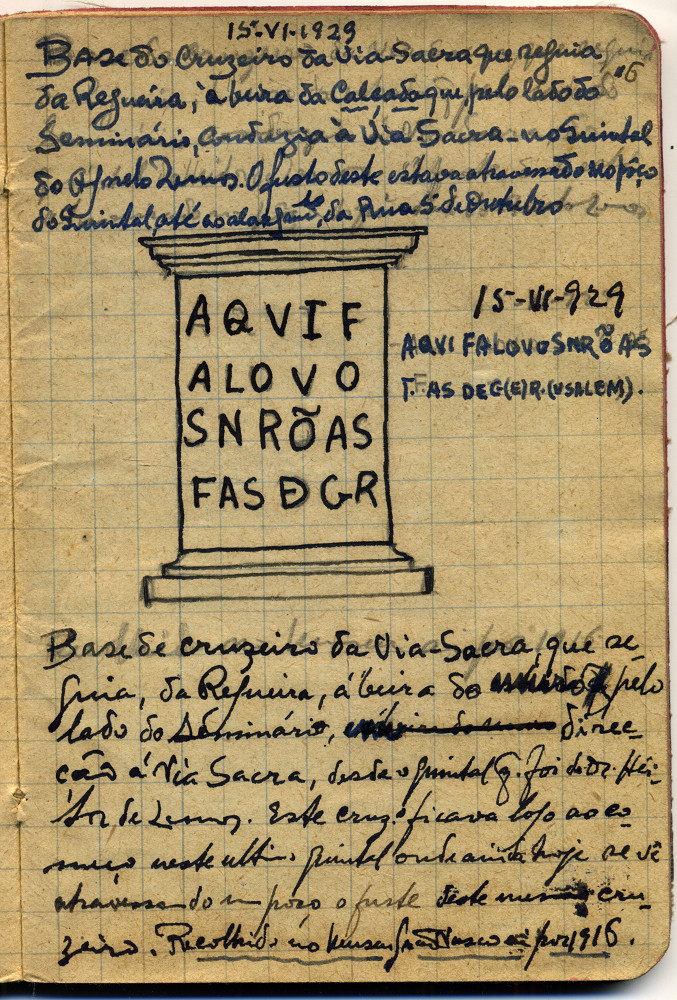 15-VI-1929
Base do Cruzeiro da Via-Sacra que seguia
da Regueira, à beira da Calçada que, pelo lado do
Seminário, conduzia à Via Sacra - no Quintal
do Lemos. O fuste deste estava atravessado no pôço
do Quintal, até ao alargamto da Rua 5 de Outubro
AQVIF
ALOVO
SNRÕAS
FASDGR
15-VI-929
AQVI FALOVO SNRÕ AS
F. AS DE G(E)R.(USALEM).
Base de cruzeiro da Via-Sacra, que se-
guia, da Regueira, á beira do pelo
lado do Seminário, direc-
ção á Via Sacra, desde o quintal q. foi do Dr. Hei-
tor de Lemos. Este cruzº ficava logo ao co-
meço neste ultimo quintal onde ainda hoje se vê
atravessando um poço o fuste deste mesmo cru-
zeiro. Recolhido no Museu Grão Vasco em 1916.